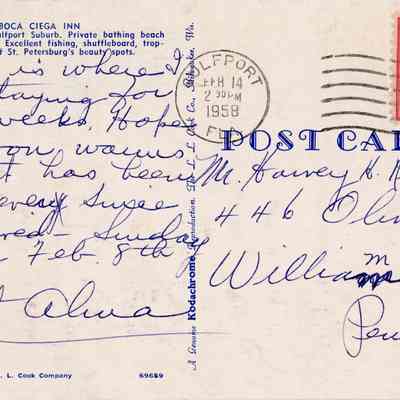 BOCA CIEGA INN
ulfport Suburb. Private bathing beach
Excellent fishing, shuffleboard, trop-
f St. Petersburg's beauty spots.
is where I
taying for
weeks. Hope
on warms
t has been
Susie
red - Sunday
Feb. 8th
Alma
L. Cook Company
69689
A Genuine Kodachrome Reproduction. The L. L. Cook Co., Milwaukee, Wis.
GULFPORT
FEB 14
2 30 PM
1958
FLA
POST CAR
Mr. Harvey H.
446 Oliv
William
m
Pen